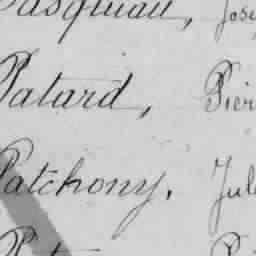 Pasquiau, Jose
Patard, Pier
Patchony, Jul